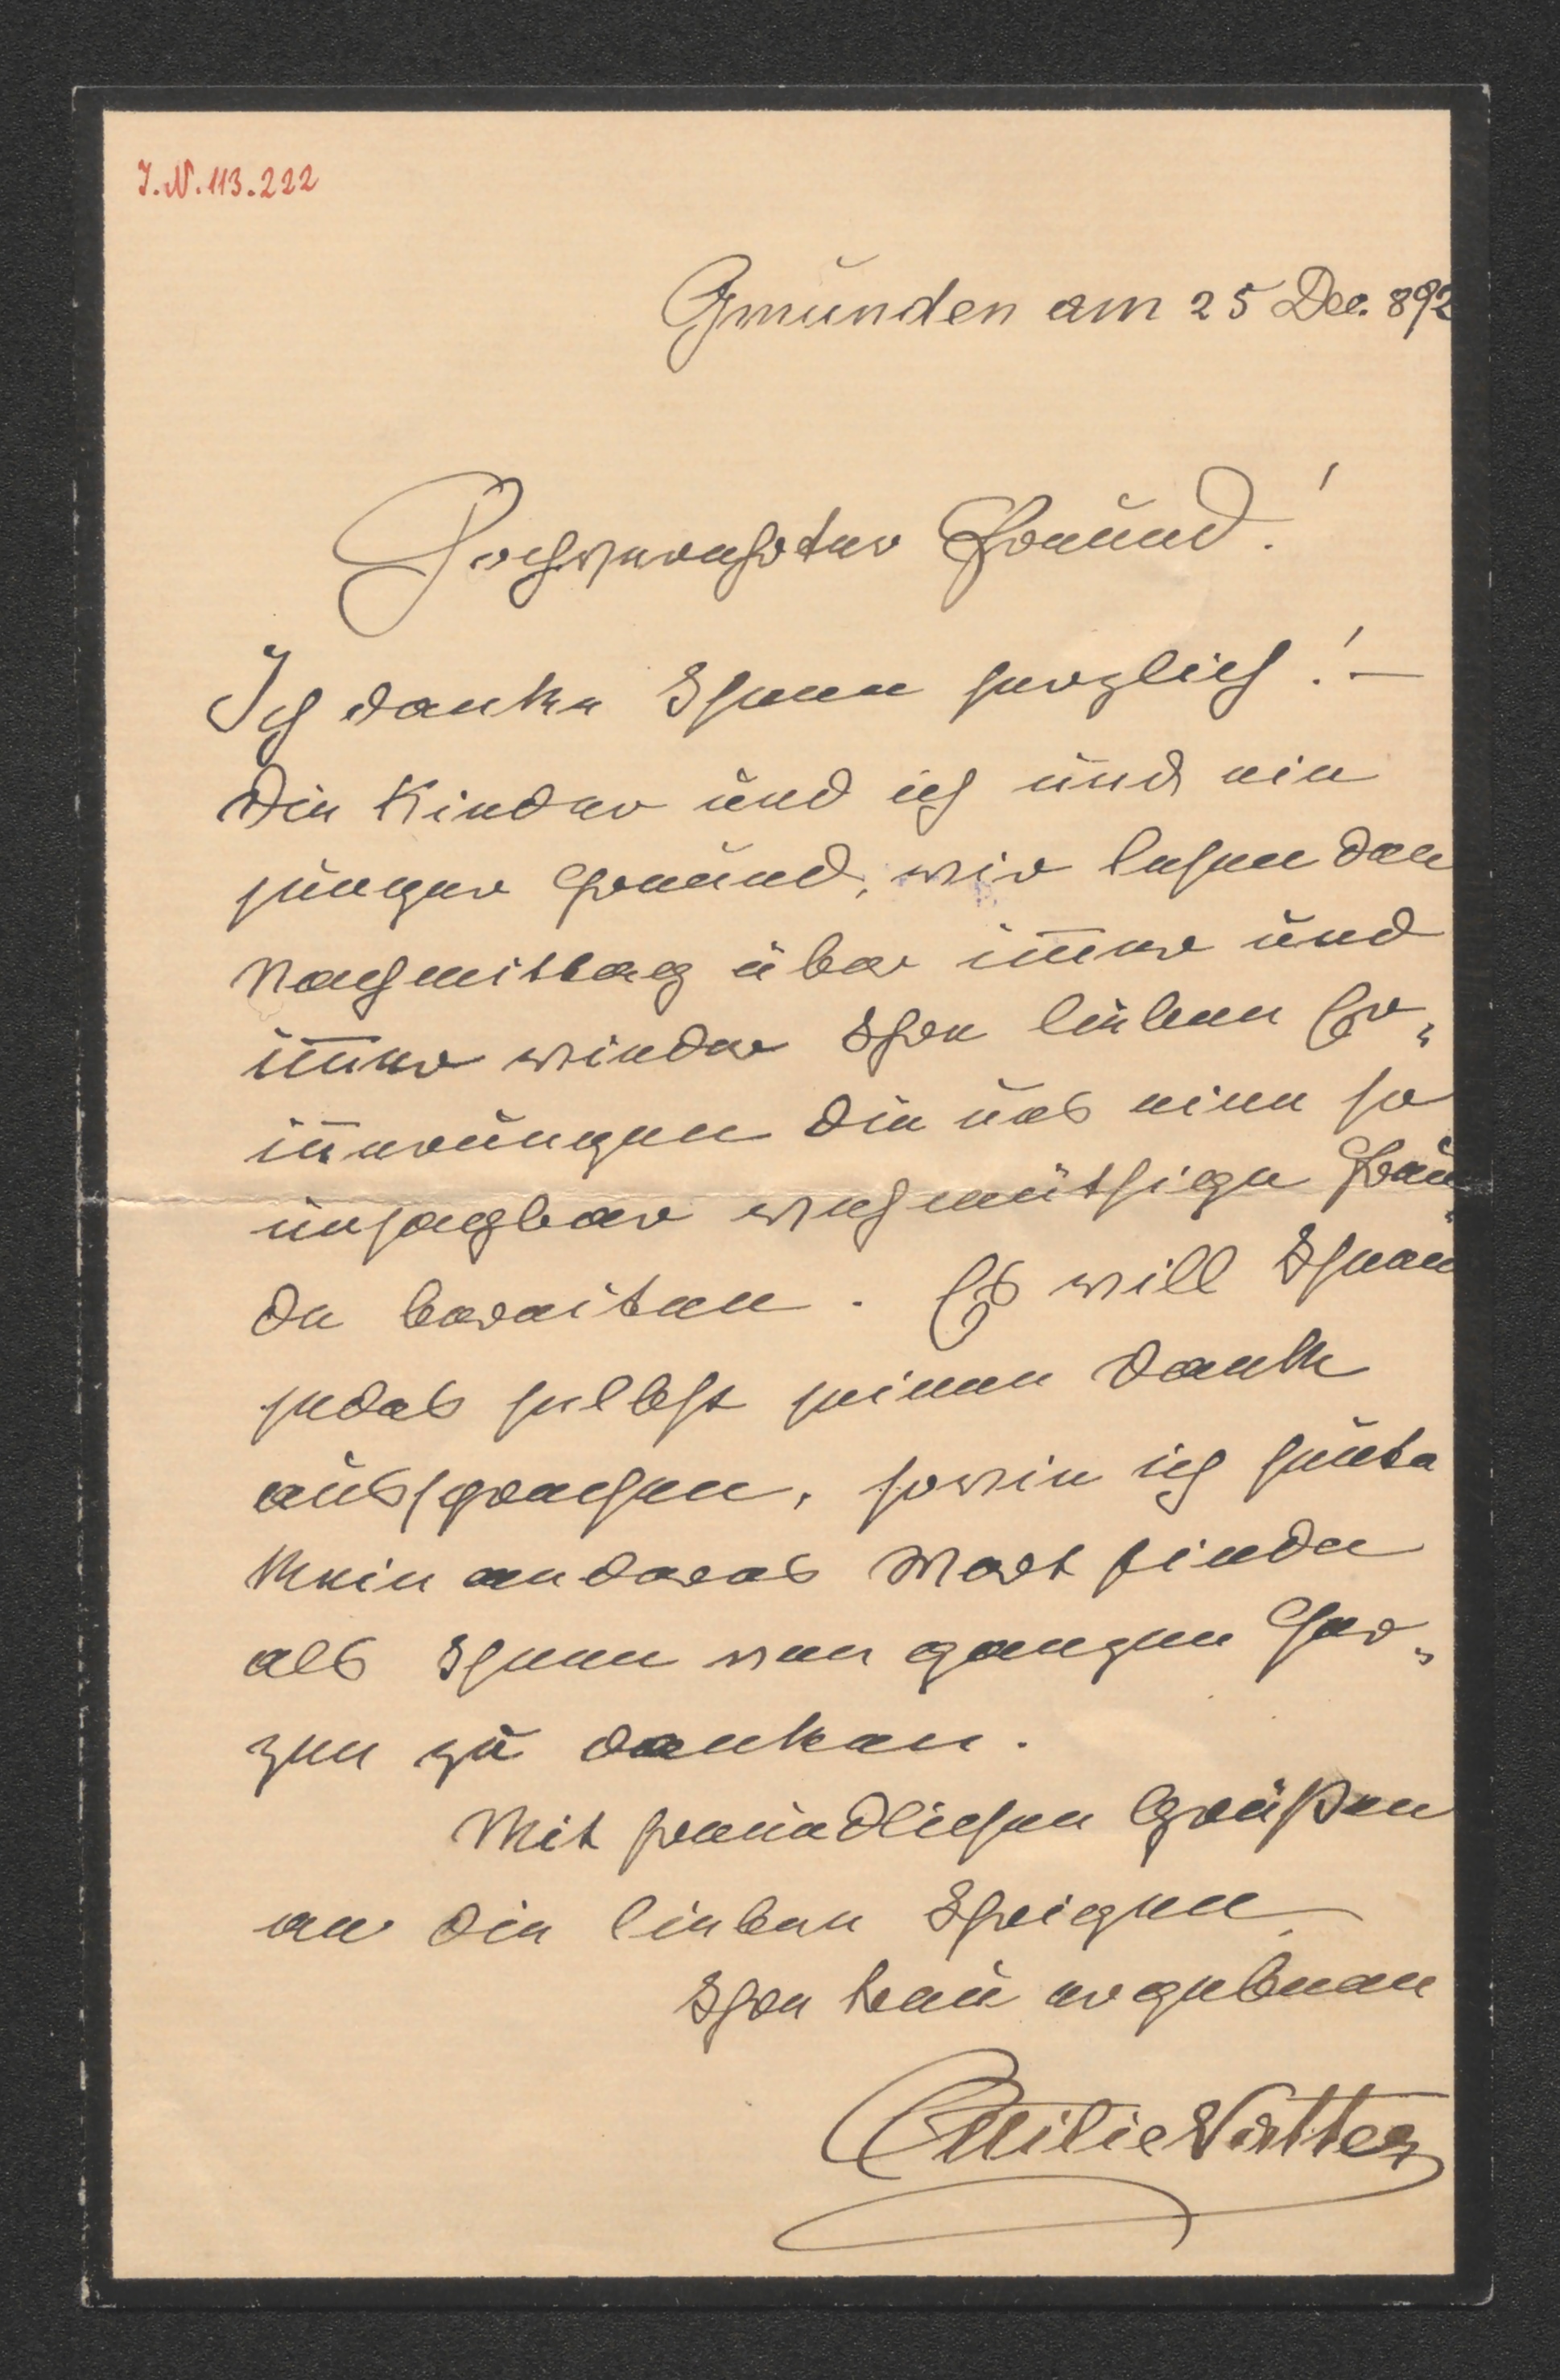 J.N. 113.222
Gmunden am 25 Dec. 892
Hochverehrter Freund!
Ich danke Ihnen herzlich! –
Die Kinder und ich und ein
junger Freund, wir lasen den
Nachmittag über im̄er und
im̄er wieder Ihre lieben Er„
in̄erungen die uns eine so
unsagbar wehmüthige Freu„
de bereiten. Es will Ihnen
jedes selbst seinen Dank
aussprechen, sowie ich heute
kein anderes Wort finde
als Ihnen von ganzem Her„
zen zu danken.
Mit freundlichen Grüßen
an die lieben Ihrigen
Ihre treu ergebene
Emilie